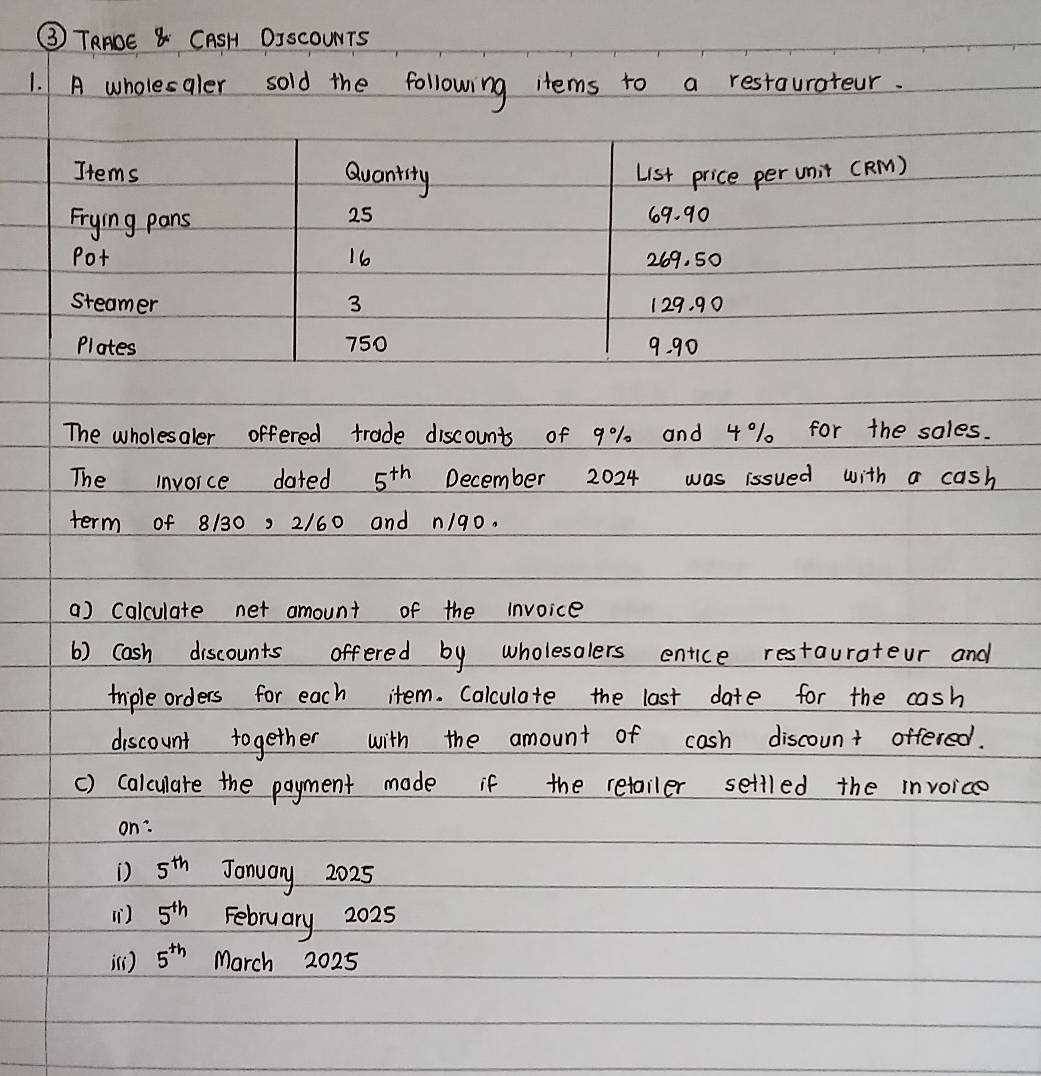 ③ TRADE & CASH DISCOUNTS
1. A wholesaler sold the following items to a restaurateur.
Items Quantity List price per unit (RM)
Frying pans 25 69.90
Pot 16 269.50
Steamer 3 129.90
Plates 750 9.90
The wholesaler offered trade discounts of 9% and 4% for the sales.
The invoice dated 5th December 2024 was issued with a cash
term of 8/30, 2/60 and n/90.
a) Calculate net amount of the invoice
b) Cash discounts offered by wholesalers entice restaurateur and
triple orders for each item. Calculate the last date for the cash
discount together with the amount of cash discount offered.
c) Calculate the payment made if the retailer settled the invoice
on:
i) 5th January 2025
ii) 5th February 2025
iii) 5th March 2025